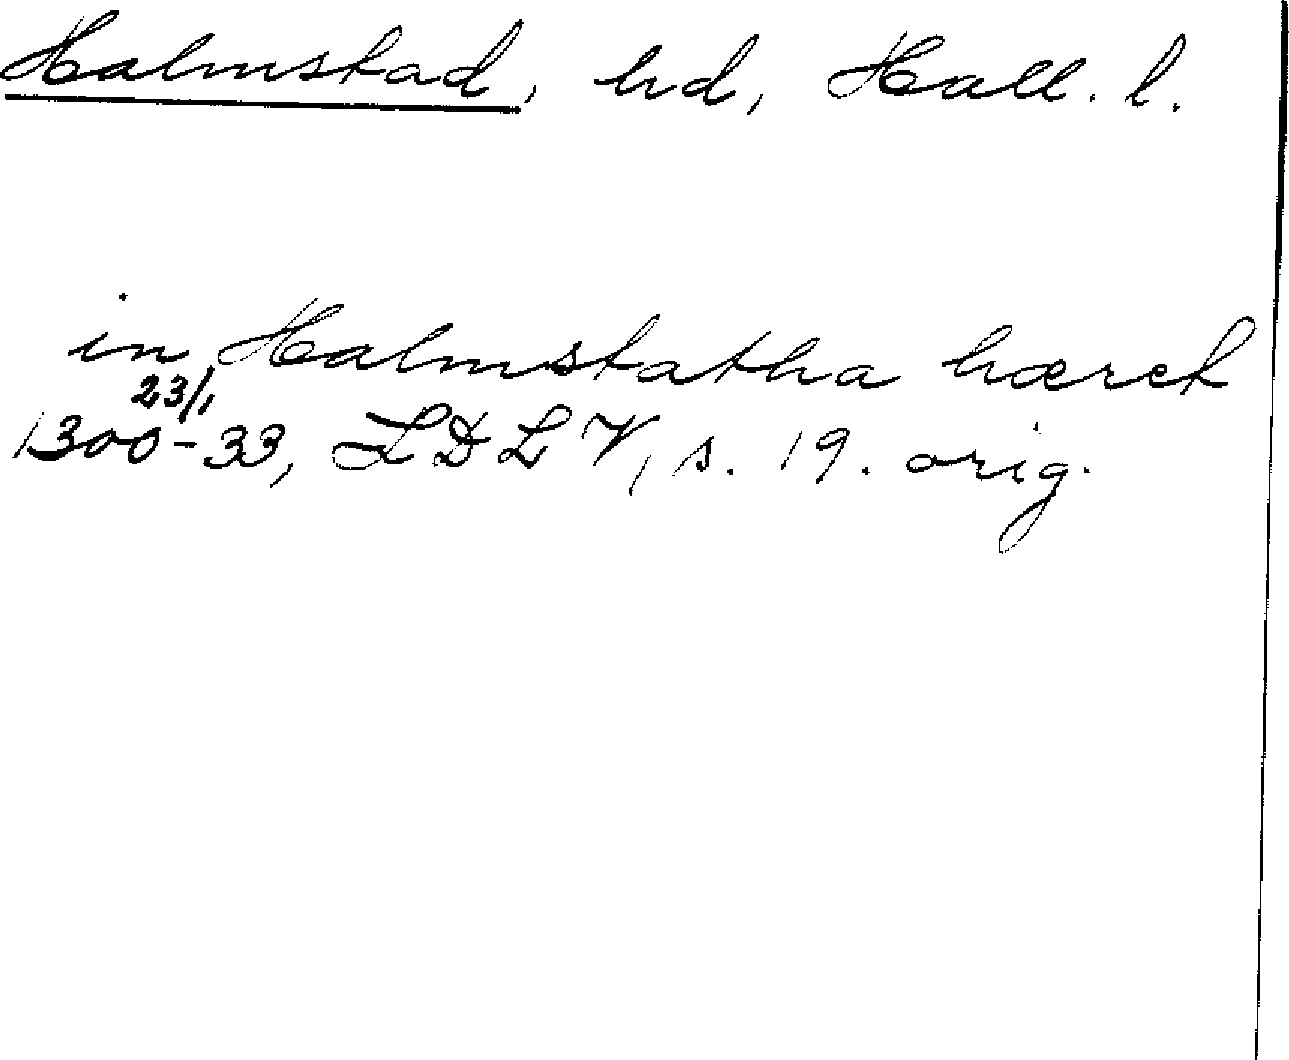 Halmstad, hd, Hall. l.
in Halmstatha hæret
23/1
1300-33, LDLV, s. 19. orig.